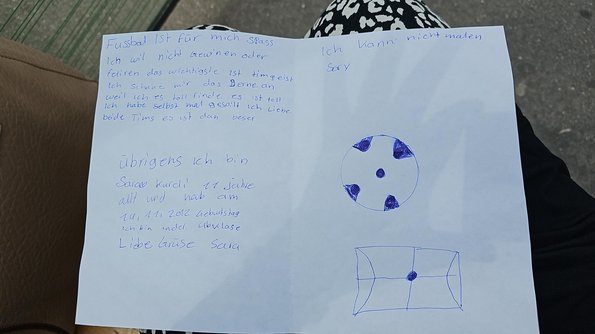 Fussbal ist für mich spass
Ich wil nicht gewinen oder
feliren das wichtigste ist timgeist
Ich schaue mir das Derne an
weil ich es toll finde es ist toll
Ich habe selbst mal gespilt ich Liebe
beide Tims es ist dan beser
übrigens ich bin
Sarah Kurdi 11 Jahre
allt und hab am
10.11.2012 Geburtstag
Ich bin in der
Liebe Grüse Sara
Ich kann nicht malen
Sory